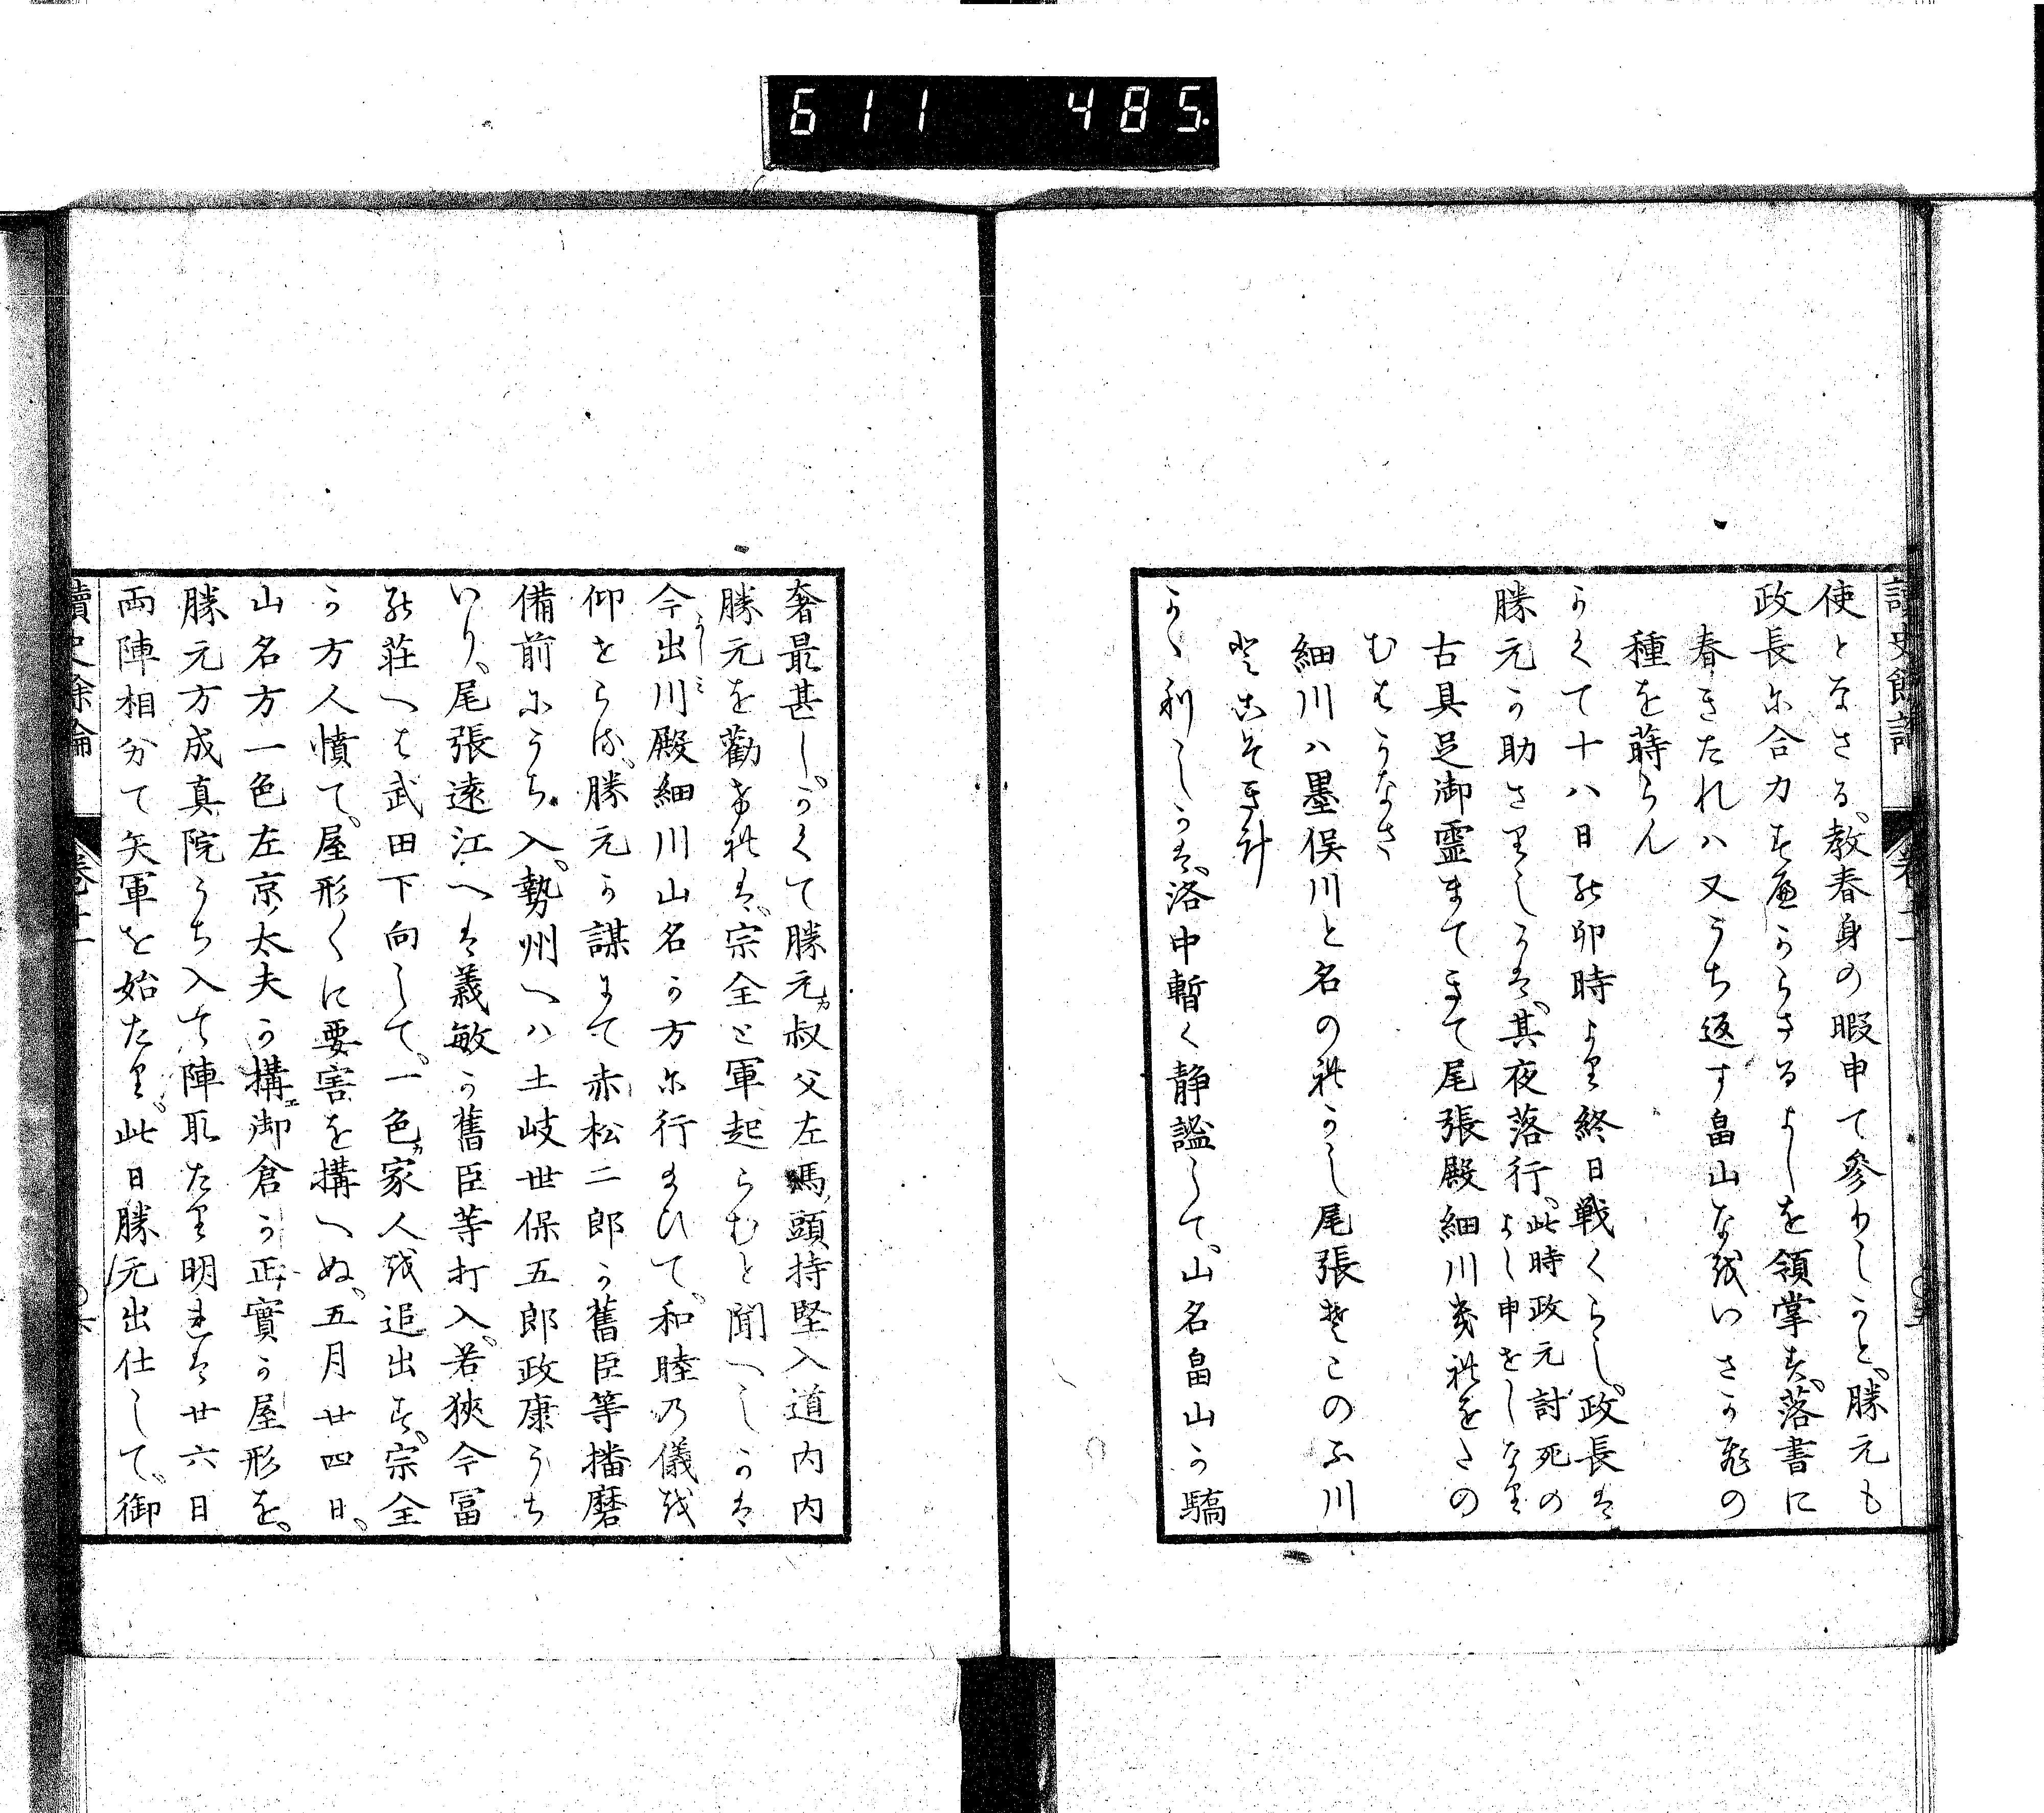 611 485
使となさる。教春身の暇申て參りしかと。勝元も
政長に合力す應からさるよしを領掌す。落書に
春きたれハ又うち返す畠山な越いさか飛の
種を蒔らん
かくて十八日能卯時より終日戦くらし。政長は
勝元か助さりしかは。其夜落行。此時政元討死の
よし申をしなり
古具足御霊まてきて尾張殿細川幾礼をたの
むはうなさ
細川ハ墨俣川と名の礼かし尾張せこのふ川
登こそき計
かく利しかは。洛中暫く静謐して。山名畠山か驕
奢最甚し。かくて勝元カ叔父左馬頭持堅入道内内
勝元を勸め礼は。宗全と軍起らむと聞へしかは
今出川殿細川山名か方に行まひて。和睦乃儀越
仰とらる。勝元か謀まて赤松二郎か舊臣等播磨
備前にうち入。勢州へハ土岐世保五郎政康うち
いり。尾張遠江へは義敏か舊臣等打入。若狹今冨
能莊へは武田下向して。一色カ家人越追出す。宗全
か方人憤て。屋形くに要害を構へぬ。五月廿四日。
山名方一色左京太夫か構エ御倉か正實か屋形を。
勝元方成真院うち入て陣取たり明れは廿六日
両陣相分て矢軍を始たり。此日勝元出仕して。御
讀史餘論 巻十一